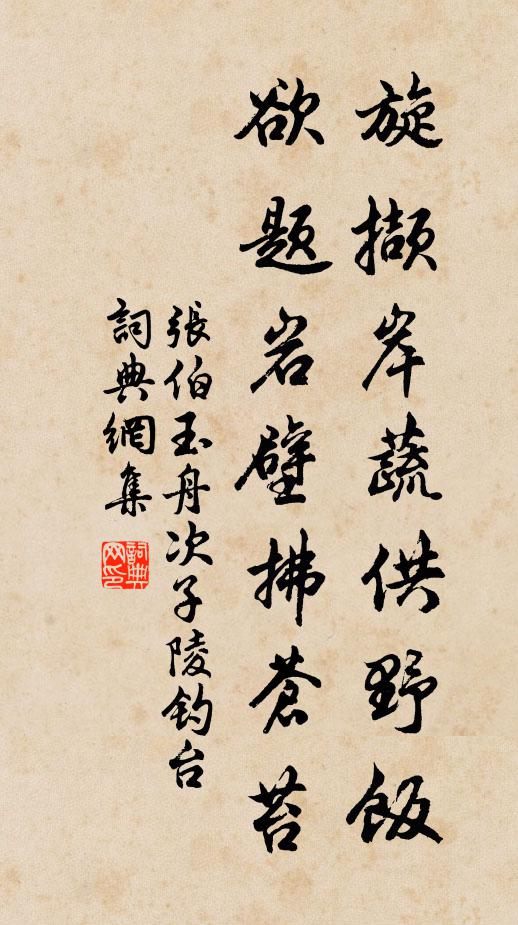 旋擷岸蔬供野飯
欲题岩壁拂蒼苔
張伯玉舟次子陵钓台
詞典網集
詞典網印